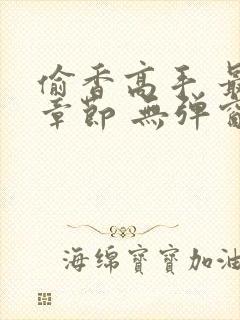 偷香高手 最
章節 無彈窗
海绵寶寶加油